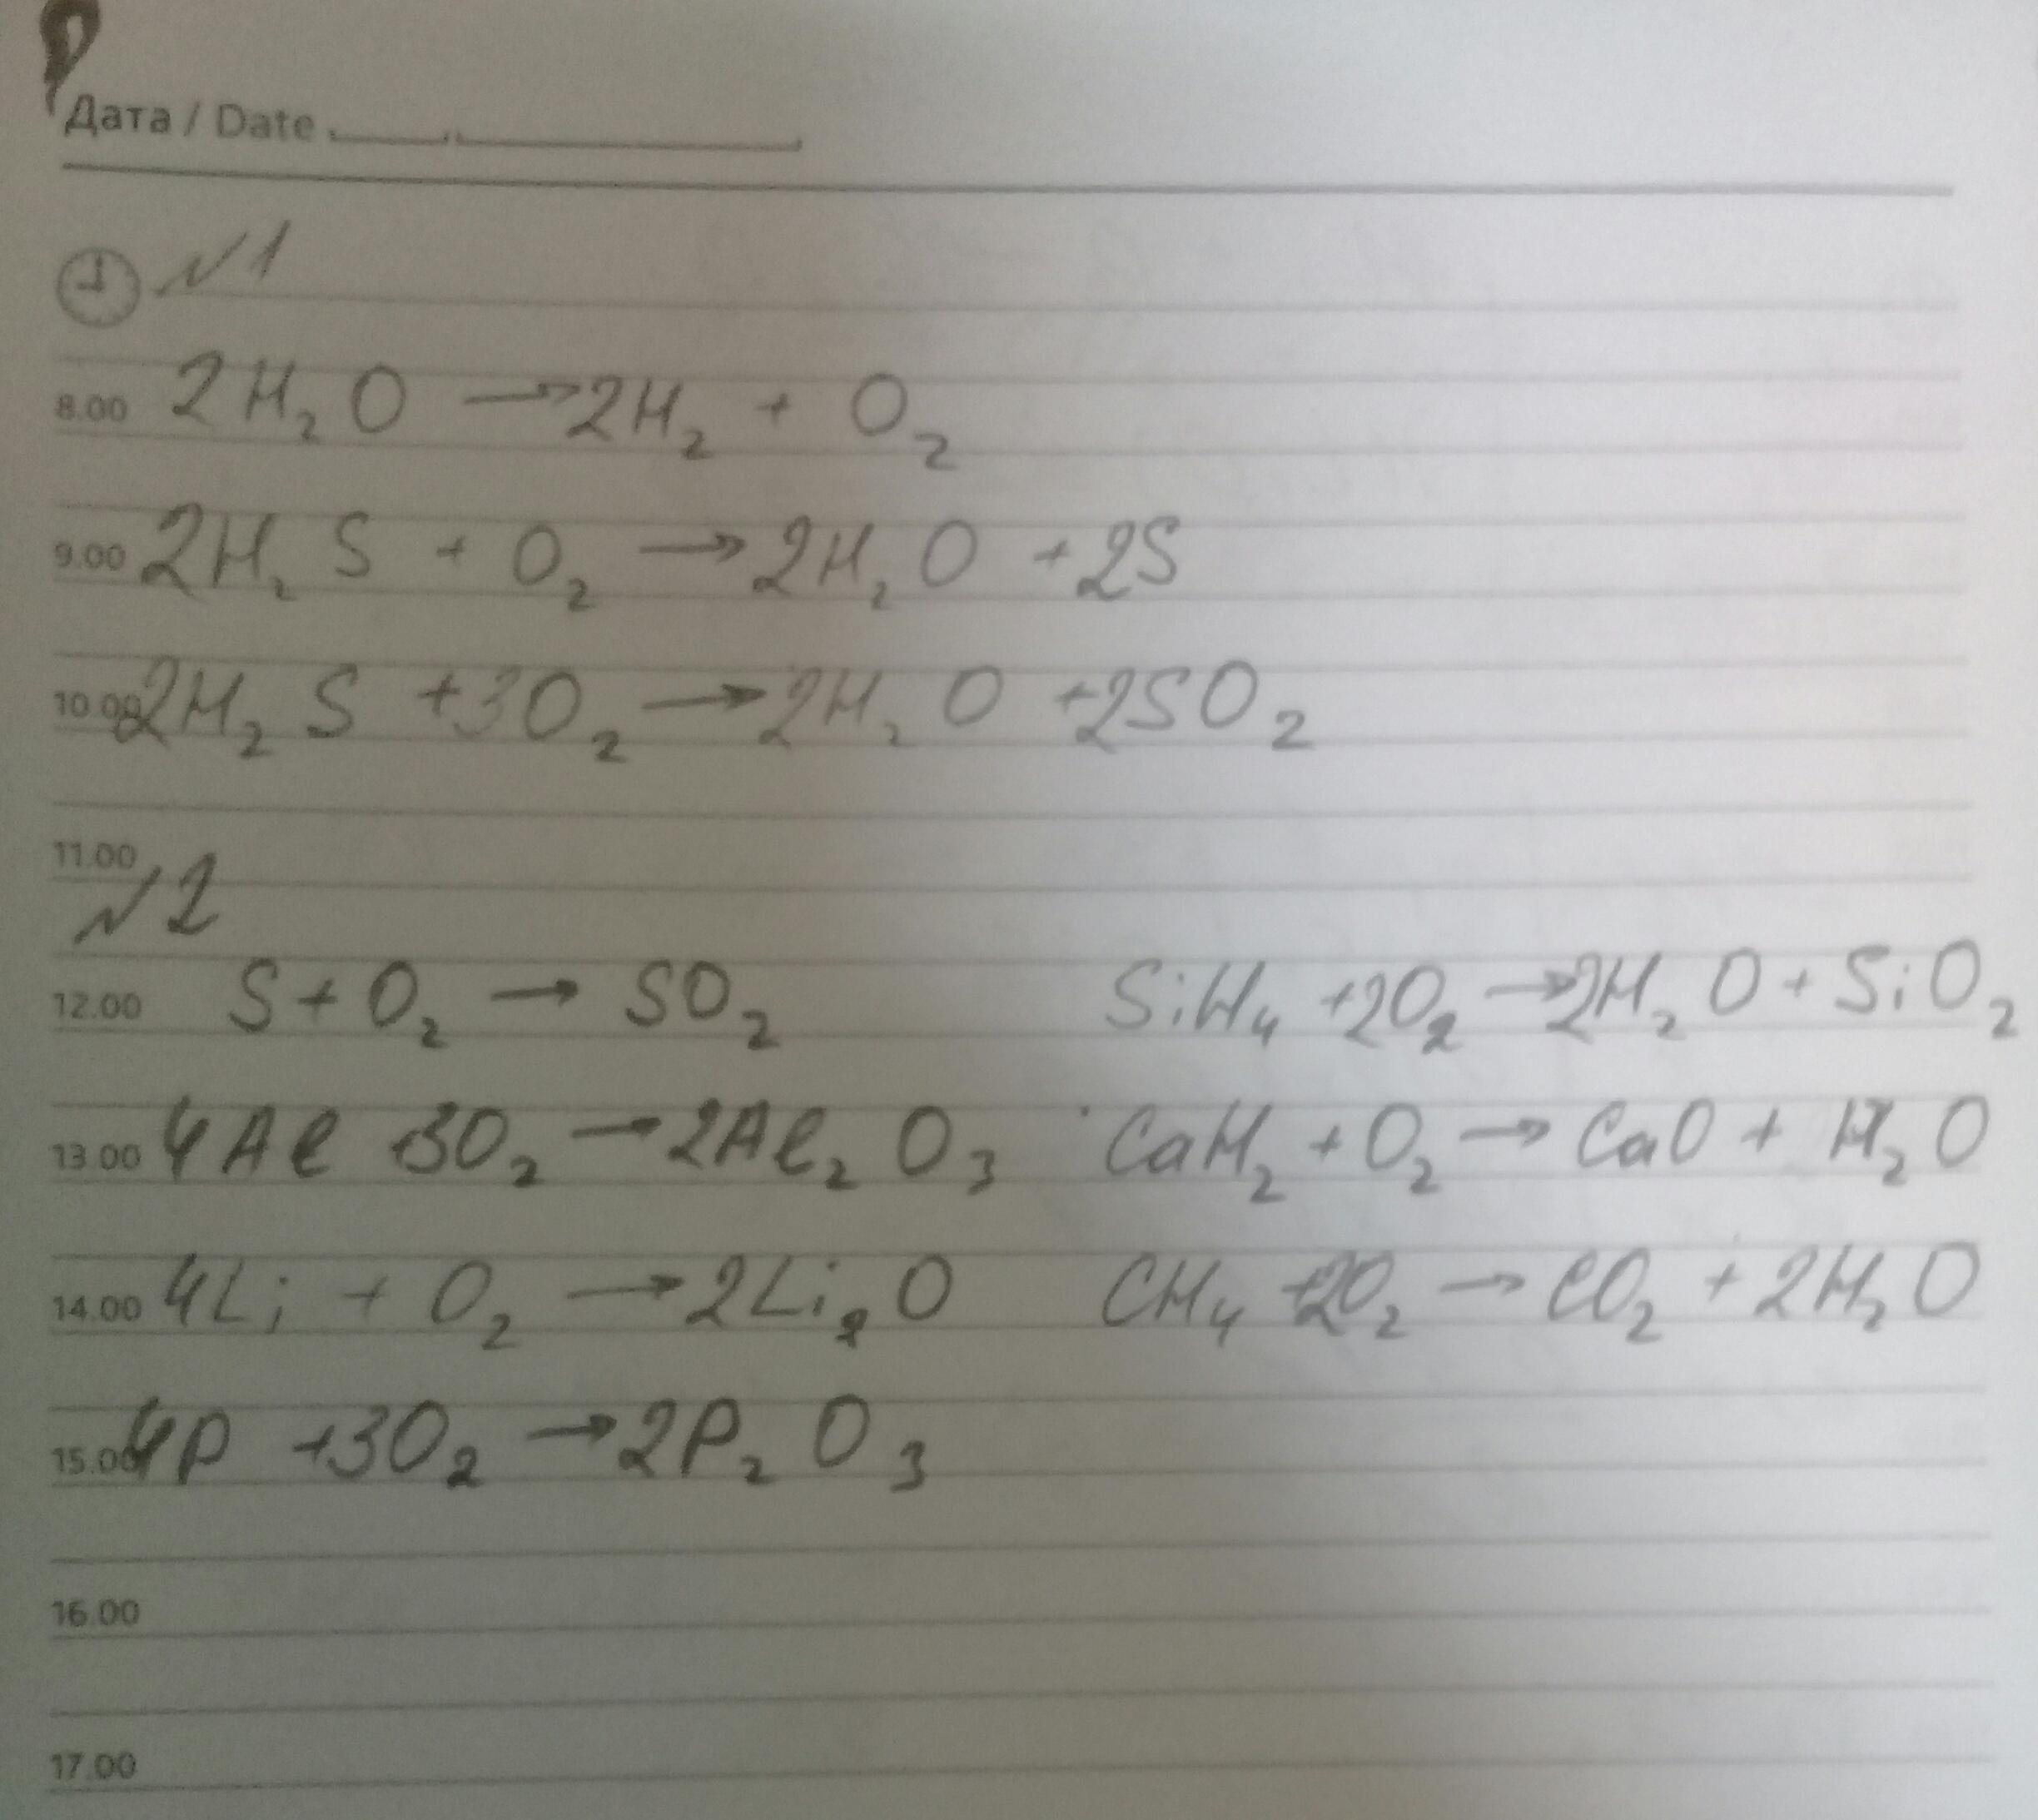 Дата / Date
№1
8.00 2H₂O → 2H₂ + O₂
9.00 2H₂S + O₂ → 2H₂O + 2S
10.00 2H₂S + 3O₂ → 2H₂O + 2SO₂
11.00
№2
12.00 S + O₂ → SO₂ SiH₄ + 2O₂ → 2H₂O + SiO₂
13.00 4Al + 3O₂ → 2Al₂O₃ CaH₂ + O₂ → CaO + H₂O
14.00 4Li + O₂ → 2Li₂O CH₄ + 2O₂ → CO₂ + 2H₂O
15.00 4P + 3O₂ → 2P₂O₃
16.00
17.00